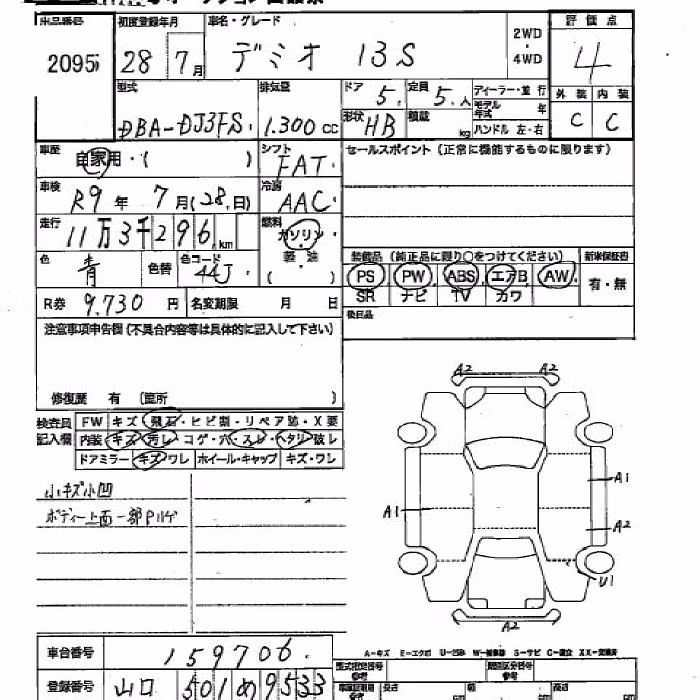 出品番号 2095
初度登録年月 28 7月
車名・グレード デミオ 13S
2WD・4WD
評価点 4
外装 内装
C C
型式 DBA-DJ3FS
排気量 1.300 cc
ドア 5
定員 5 人
ディーラー・並行
モデル年式 年
形状 HB
積載 kg
ハンドル 左・右
車歴 自家用・( )
シフト FAT
セールスポイント (正常に機能するものに限ります)
車検 R9年 7月(28日)
冷房 AAC
走行 11万3千296km
燃料 ガソリン・軽油 ( )
色 青 色替
色コード 44J
装備品 (純正品に限り○をつけてください) 新車保証書
PS PW ABS エアB AW 有・無
SR ナビ TV カワ
R券 9.730 円 名変期限 月 日
後日品
注意事項申告欄 (不具合内容等は具体的に記入して下さい)
修復歴 有 (箇所 )
検査員記入欄
FW キズ・飛石・ヒビ割・リペア跡・X要
内装 キズ・汚レ・コゲ・穴・スレ・ヘタリ・破レ
ドアミラー キズ・ワレ ホイール・キャップ キズ・ワレ
小キズ小凹
ボディー上面一部Pハゲ
A2 A2
A1
A1
A2
U1
A2
車台番号 159706
登録番号 山口 501 め 9533
A-キズ E-エクボ
型式指定番号 類別区分番号
長さ 幅 高さ
cm cm cm